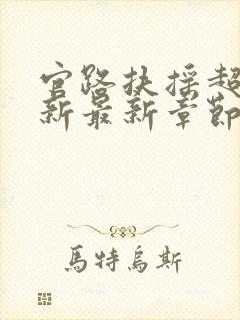 官路扶摇超
新最新章節
馬特烏斯